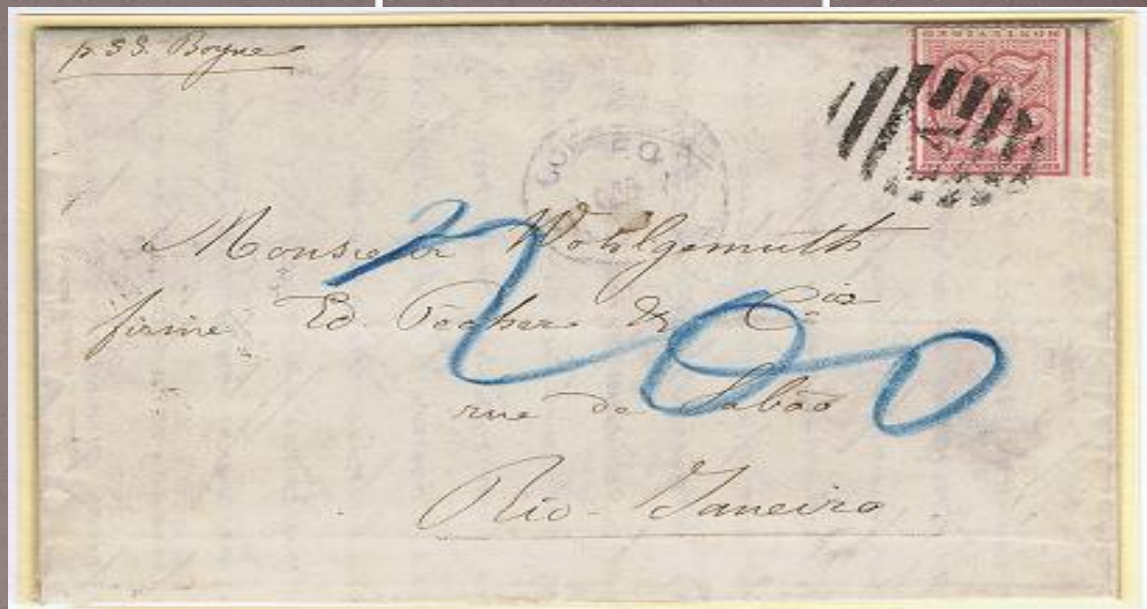 p. SS. Boyne
MONTEVIDEO
20
Monsieur Wohlgemuth
firme Ed. Pecher & Cia
200
rue do Sabão
Rio-Janeiro